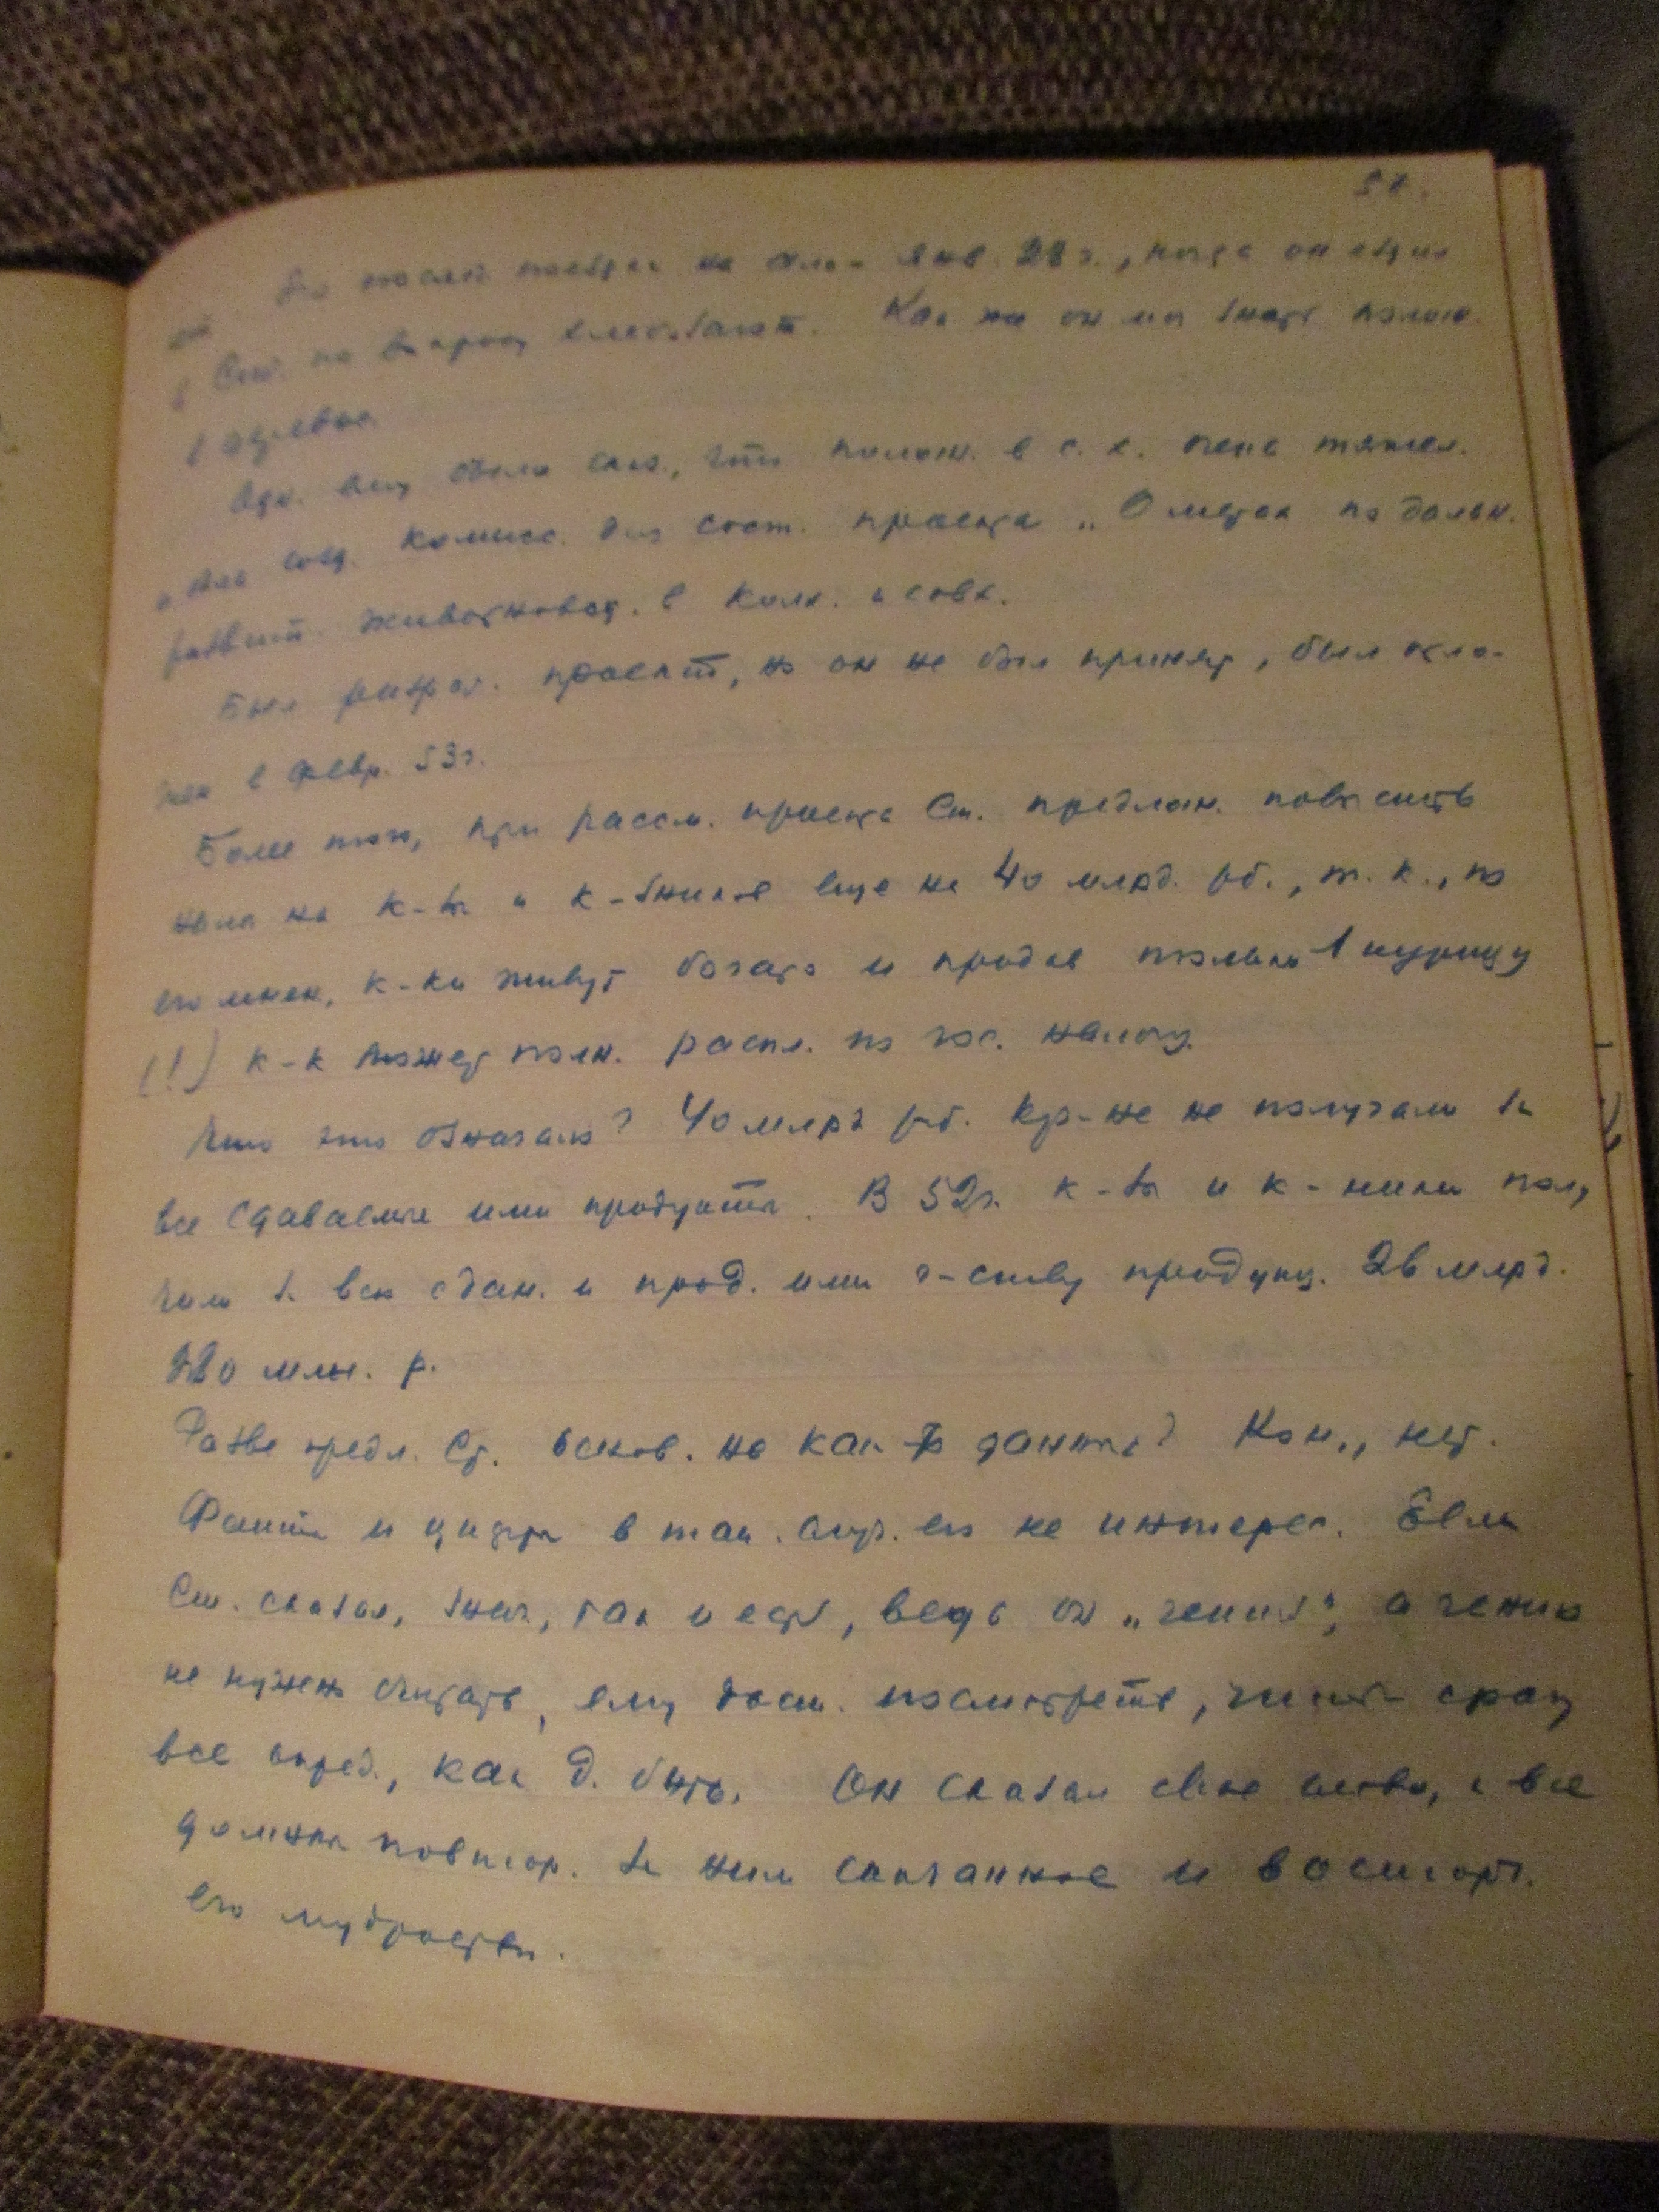 янв. 28 г., когда он ездил
в Сиб. по вопросу хлебозагот. Как же он мог знать полож.
Одн. ему было сказ., что полож. в с. х. очень тяжел.
созд. комисс. для сост. проекта „О мерах по дальн.
развит. животновод. в колх. и совх.
Был разраб. проект, но он не был принят, был отло-
жен в февр. 53 г.
Более того, при рассм. проекта Ст. предлож. повысить
налог на к-зы и к-зников еще на 40 млрд. рб., т. к., по
его мнен., к-ки живут богато и продав только 1 курицу
(!) к-к может полн. распл. по гос. налогу.
Что это означало? 40 млрд рб. кр-не не получали за
все сдаваемые ими продукты. В 52 г. к-зы и к-ники полу
чили за всю сдан. и прод. ими г-ству продукц. 26 млрд.
280 млн. р.
Разве предл. Ст. основ. на как-то данных? Кон., нет.
Факты и цифры в так. случ. его не интерес. Если
Ст. сказал, знач, так и есть, ведь он „гений“, а гению
не нужно считать, ему дост. посмотреть, чтобы сразу
все опред., как д. быть. Он сказал свое слово, и все
должны повтор. за ним сказанное и восторг.
его мудростью.